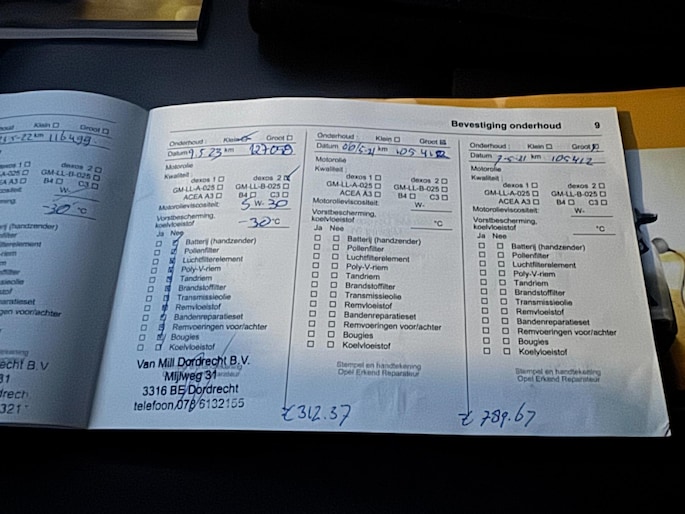 Bevestiging onderhoud 9
Klein ☐ Groot ☐
5-22 km 116499
dexos 1 ☐ dexos 2 ☐
GM-LL-B-025 ☐
B4 ☐ C3 ☐
W-
-30 °C
(handzender)
echt B.V
31
drech
321
Onderhoud: Klein ☒ Groot ☐
Datum 9.5.23 km 127058
Motorolie
Kwaliteit:
dexos 1 ☐ dexos 2 ☒
GM-LL-A-025 ☐ GM-LL-B-025 ☐
ACEA A3 ☐ B4 ☐ C3 ☐
Motorolieviscositeit: 5 W- 30
Vorstbescherming,
koelvloeistof -30 °C
Ja Nee
Batterij (handzender)
Pollenfilter
Luchtfilterelement
Poly-V-riem
Tandriem
Brandstoffilter
Transmissieolie
Remvloeistof
Bandenreparatieset
Remvoeringen voor/achter
Bougies
Koelvloeistof
Van Mill Dordrecht B.V.
Mijlweg 31
3316 BE Dordrecht
telefoon 078 6132155
Onderhoud: Klein ☐ Groot ☒
Datum km 105412
Motorolie
Kwaliteit:
dexos 1 ☐ dexos 2 ☐
GM-LL-A-025 ☐ GM-LL-B-025 ☐
ACEA A3 ☐ B4 ☐ C3 ☐
Motorolieviscositeit: W-
Vorstbescherming,
koelvloeistof °C
Ja Nee
Batterij (handzender)
Pollenfilter
Luchtfilterelement
Poly-V-riem
Tandriem
Brandstoffilter
Transmissieolie
Remvloeistof
Bandenreparatieset
Remvoeringen voor/achter
Bougies
Koelvloeistof
Stempel en handtekening
Opel Erkend Reparateur
€ 312.37
Onderhoud: Klein ☐ Groot ☒
Datum 7-5-21 km 105412
Motorolie
Kwaliteit:
dexos 1 ☐ dexos 2 ☐
GM-LL-A-025 ☐ GM-LL-B-025 ☐
ACEA A3 ☐ B4 ☐ C3 ☐
Motorolieviscositeit: W-
Vorstbescherming,
koelvloeistof °C
Ja Nee
Batterij (handzender)
Pollenfilter
Luchtfilterelement
Poly-V-riem
Tandriem
Brandstoffilter
Transmissieolie
Remvloeistof
Bandenreparatieset
Remvoeringen voor/achter
Bougies
Koelvloeistof
Stempel en handtekening
Opel Erkend Reparateur
€ 789.67